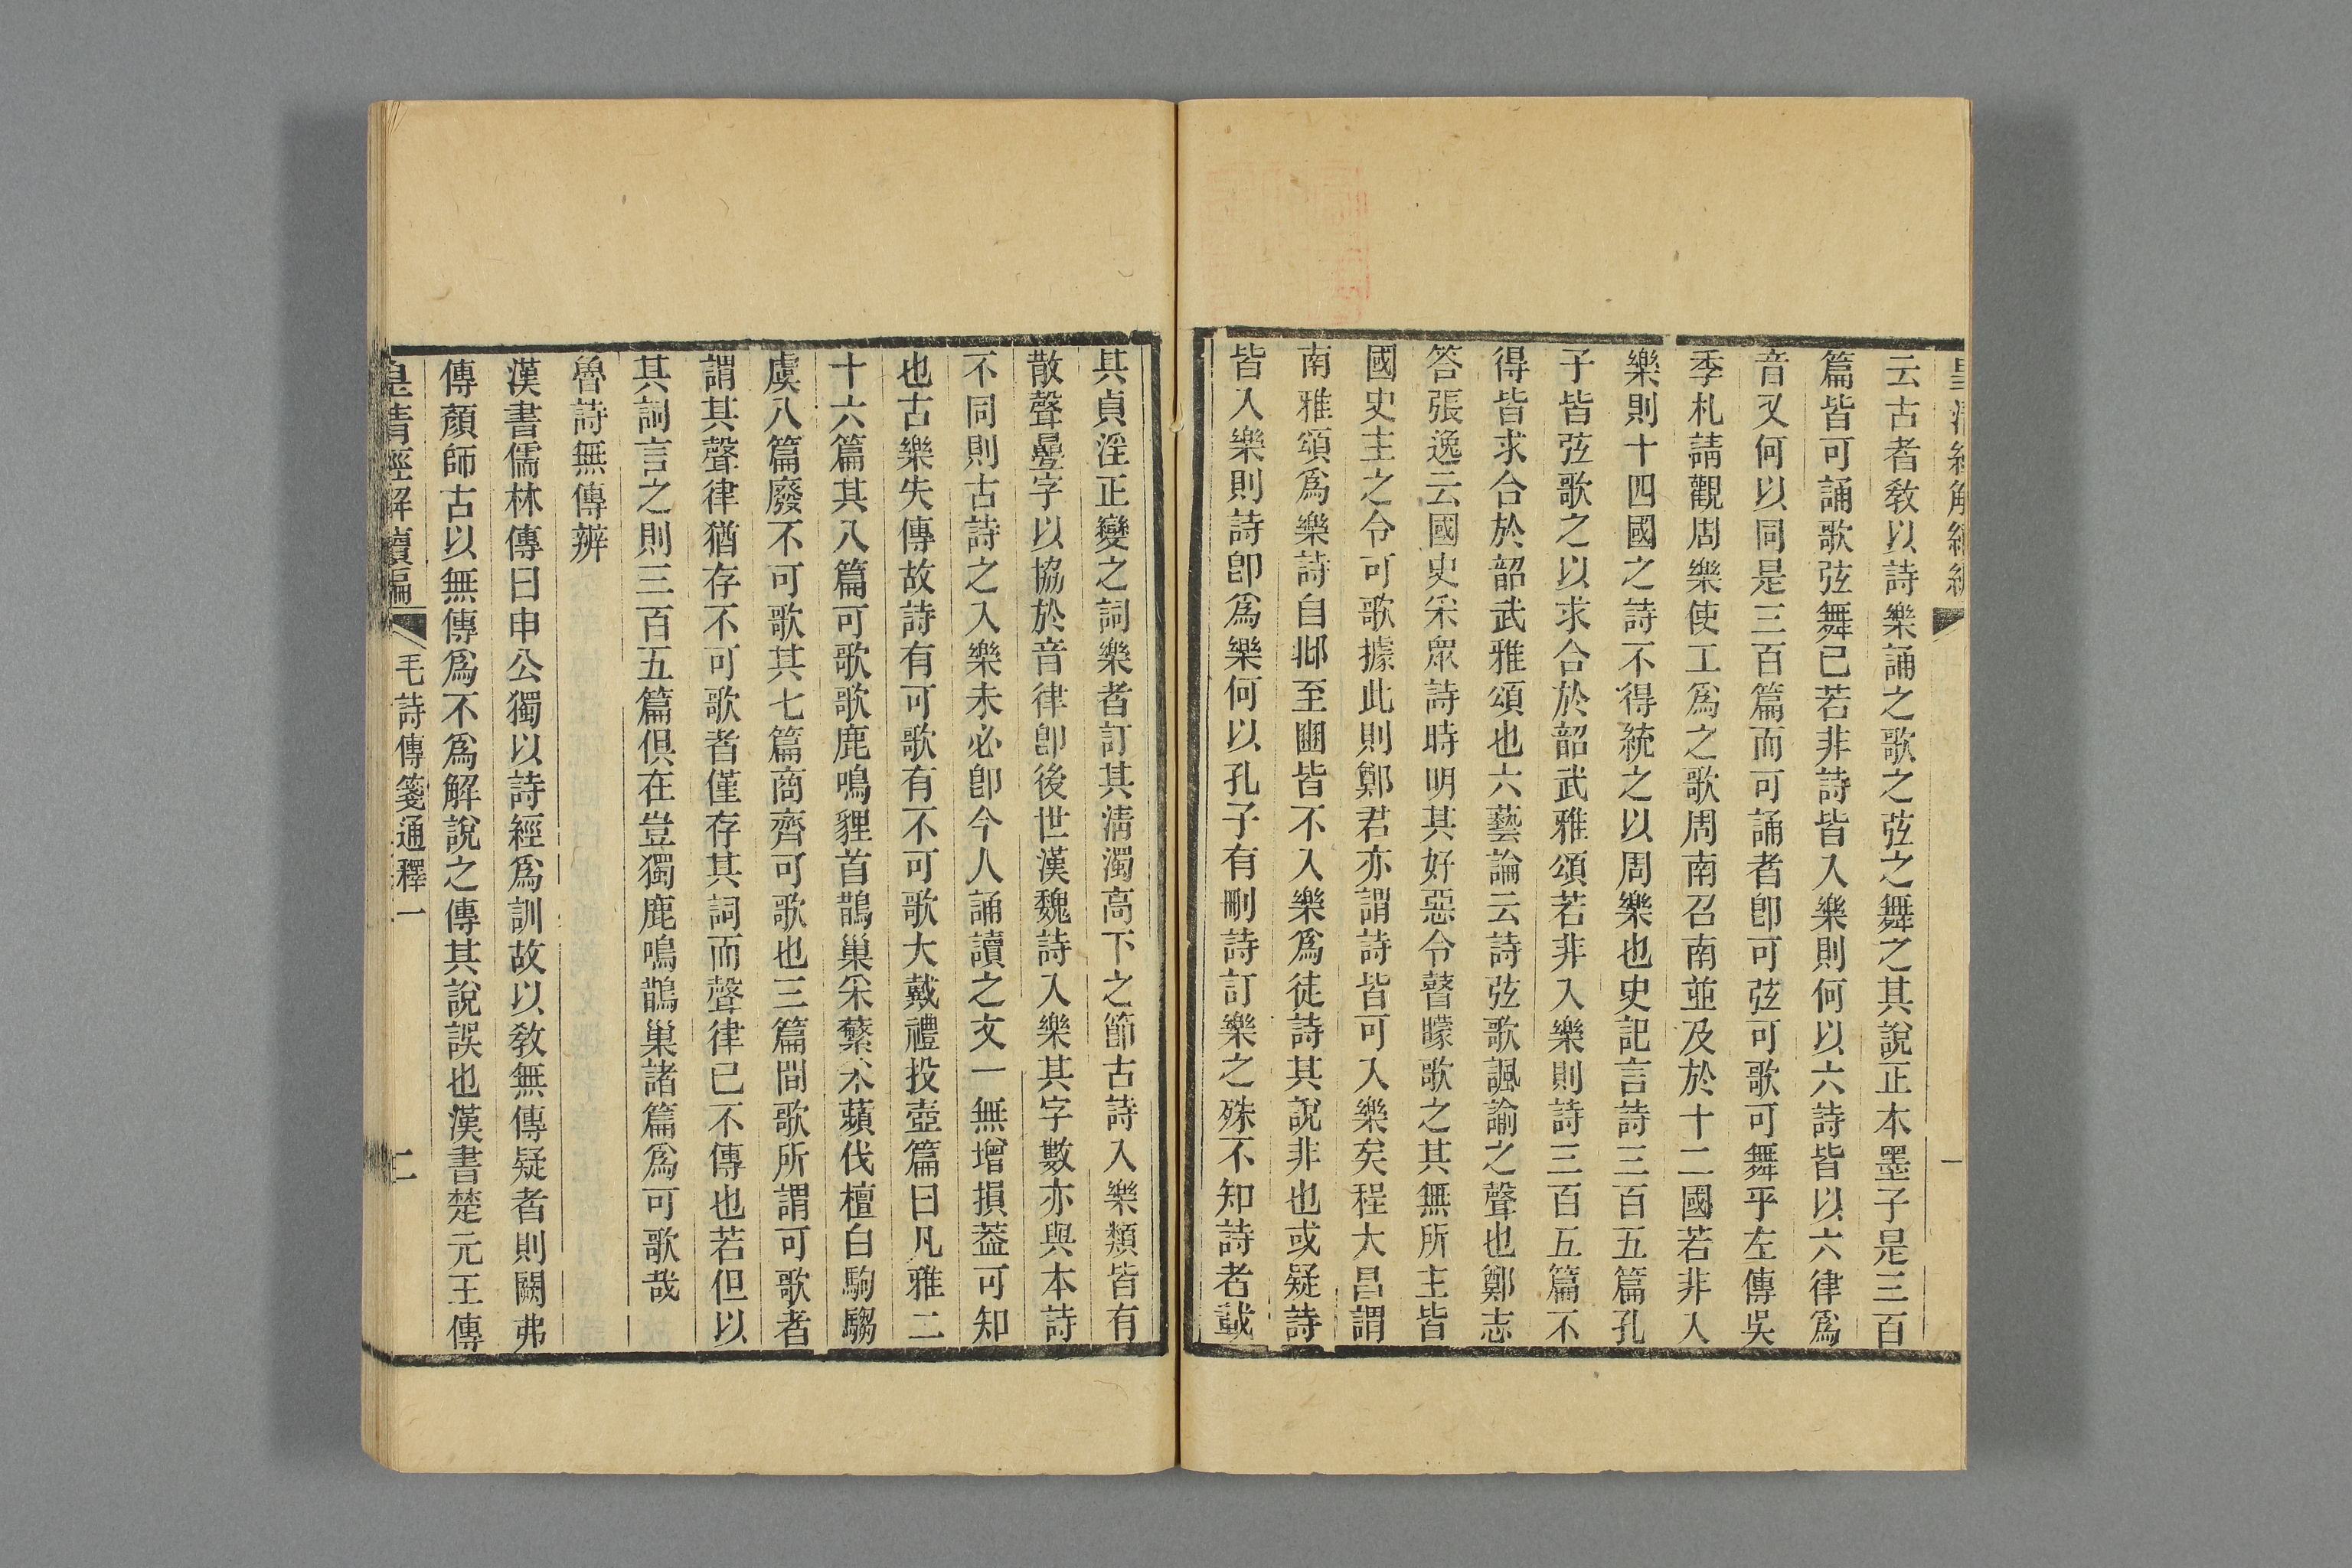 云古者敎以詩樂誦之歌之弦之舞之其說正本墨子是三百
篇皆可誦歌弦舞已若非詩皆入樂則何以六詩皆以六律爲
音又何以同是三百篇而可誦者卽可弦可歌可舞乎左傳吳
季札請觀周樂使工爲之歌周南召南並及於十二國若非入
樂則十四國之詩不得統之以周樂也史記言詩三百五篇孔
子皆弦歌之以求合於韶武雅頌若非入樂則詩三百五篇不
得皆求合於韶武雅頌也六藝論云詩弦歌諷諭之聲也鄭志
答張逸云國史采眾詩時明其好惡令瞽矇歌之其無所主皆
國史主之令可歌據此則鄭君亦謂詩皆可入樂矣程大昌謂
南雅頌爲樂詩自邶至豳皆不入樂爲徒詩其說非也或疑詩
皆入樂則詩卽爲樂何以孔子有刪詩訂樂之殊不知詩者載
其貞淫正變之詞樂者訂其淸濁高下之節古詩入樂類皆有
散聲曡字以協於音律卽後世漢魏詩入樂其字數亦與本詩
不同則古詩之入樂未必卽今人誦讀之文一無增損葢可知
也古樂失傳故詩有可歌有不可歌大戴禮投壺篇曰凡雅二
十六篇其八篇可歌歌鹿鳴貍首鵲巢采蘩采蘋伐檀白駒騶
虞八篇廢不可歌其七篇商齊可歌也三篇間歌所謂可歌者
謂其聲律猶存不可歌者僅存其詞而聲律已不傳也若但以
其詞言之則三百五篇俱在豈獨鹿鳴鵲巢諸篇爲可歌哉
魯詩無傳辨
漢書儒林傳曰申公獨以詩經爲訓故以敎無傳疑者則闕弗
傳顏師古以無傳爲不爲解說之傳其說誤也漢書楚元王傳
皇淸經解續編
毛詩傳箋通釋一
二